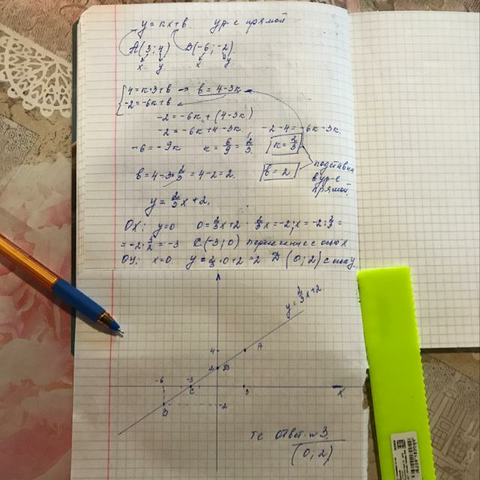 y = kx+b ур-е прямой
A(3; 4) B(-6; -2)
x y x y
4 = k·3+b → b = 4-3k
-2 = -6k+b
-2 = -6k + (4-3k)
-2 = -6k+4-3k, -2-4 = -6k-3k
-6 = -9k k = 6/9 = 2/3 k = 2/3
b = 4-3·2/3 = 4-2 = 2. b = 2
в ур-е
прямой
y = 2/3x+2.
OX: y=0 0 = 2/3x+2 2/3x = -2; x = -2 : 2/3 =
= -2·3/2 = -3 C(-3; 0) пересечение с осью x
OY: x=0 y = 2/3·0+2 = 2 D (0; 2) с осью y
y = 2/3x+2
4 A
2 D
-6 -3
C 3 X
B -2
т.е. ответ №3
(0, 2)